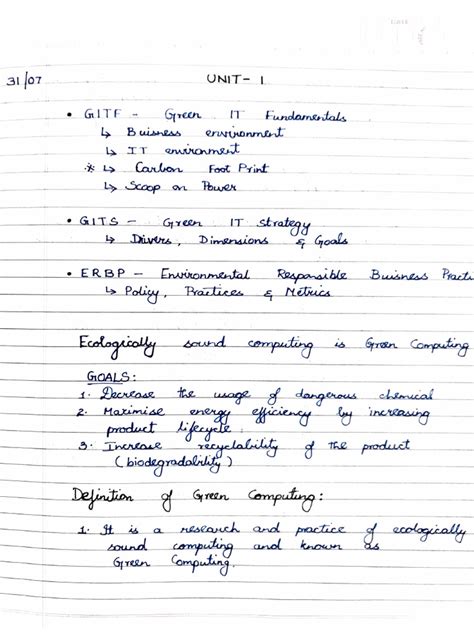 31/07 UNIT - 1
• GITF - Green IT Fundamentals
↳ Buisness environment
↳ IT environment
* ↳ Carbon Foot Print
↳ Scoop on Power
• GITS - Green IT strategy
↳ Drivers, Dimensions & Goals
• ERBP - Environmental Responsible Buisness Practi
↳ Policy, Practices & Metrics
Ecologically sound computing is Green Computing
GOALS:
1. Decrease the usage of dangerous chemical
2. Maximise energy efficiency by increasing
product lifecycle
3. Increase recyclability of the product
(biodegradability)
Definition of Green Computing:
1. It is a research and practice of ecologically
sound computing and known as
Green Computing.